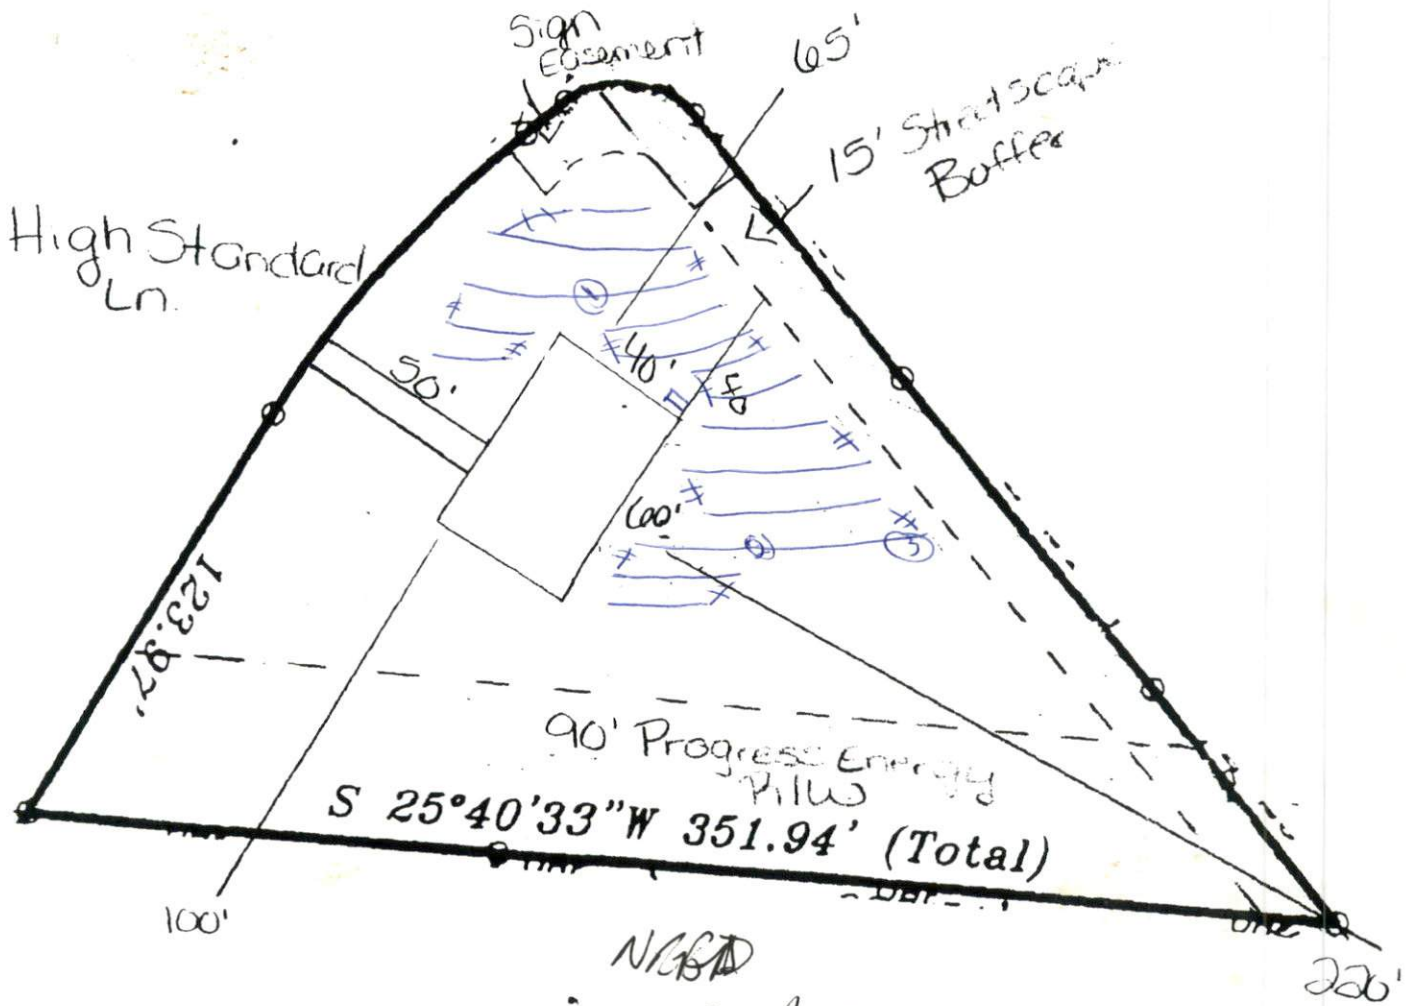 Sign
Easement
65'
15' Streetscape
Buffer
High Standard
Ln.
1
50'
40'
60'
2
3
123.97'
90' Progress Energy
S 25°40'33"W 351.94' (Total)
100'
220'